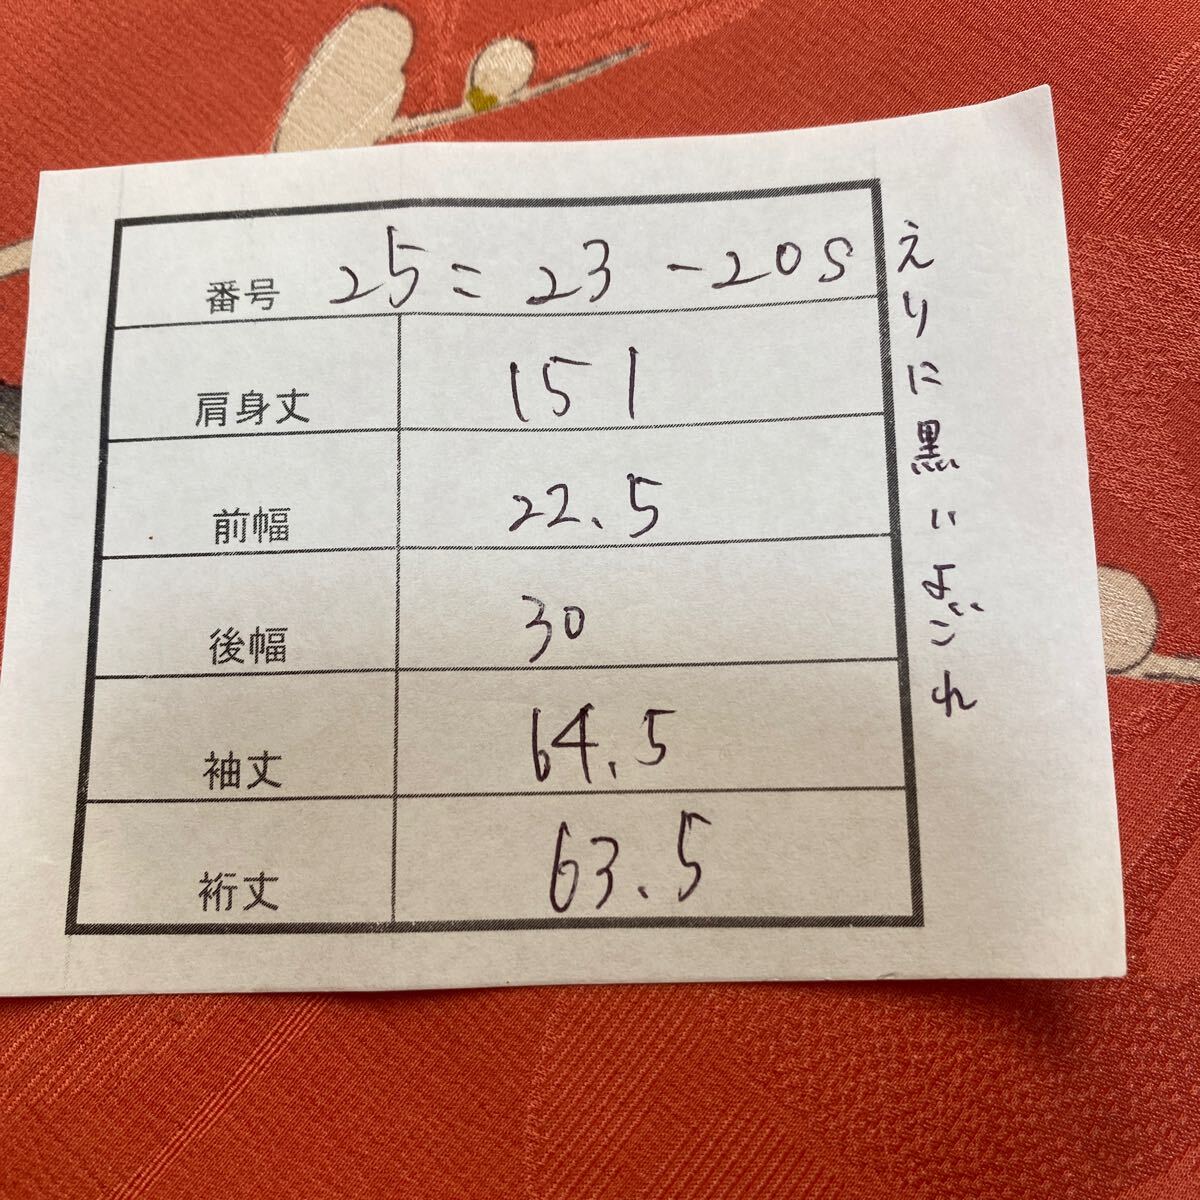 番号 25=23-20S
肩身丈 151
前幅 22.5
後幅 30
袖丈 64.5
裄丈 63.5
えりに黒いよごれ